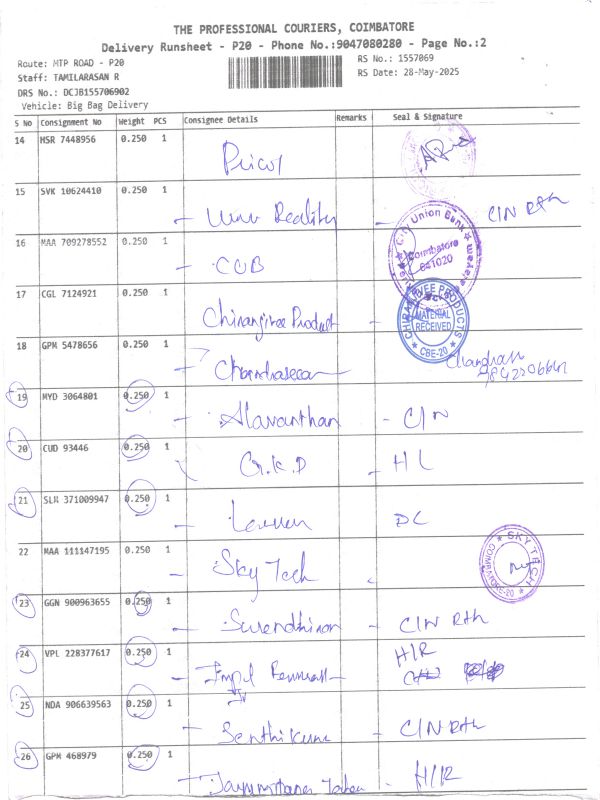 THE PROFESSIONAL COURIERS, COIMBATORE
Delivery Runsheet - P20 - Phone No.:9047080280 - Page No.:2
Route: MTP ROAD - P20
RS No.: 1557069
Staff: TAMILARASAN R
RS Date: 28-May-2025
DRS No.: DCJB155706902
Vehicle: Big Bag Delivery
S No Consignment No Weight PCS Consignee Details Remarks Seal & Signature
14 HSR 7448956 0.250 1
Pricol
15 SVK 10624410 0.250 1
Reality - CIN
16 MAA 709278552 0.250 1
- CUB
City Union Bank
Coimbatore
641020
17 CGL 7124921 0.250 1
Chiranjivee Product -
CHIRANJEEVEE PRODUCTS
MATERIAL
RECEIVED
CBE-20
18 GPM 5478656 0.250 1
19 MYD 3064801 0.250 1
- Alavanthan - CIN
20 CUD 93446 0.250 1
G.K.D - HL
21 SLM 371009947 0.250 1
- DC
22 MAA 111147195 0.250 1
- Sky Tech
SKY TECH
COIMBATORE-20
23 GGN 900963655 0.250 1
- Surendhiran - CIN
24 VPL 228377617 0.250 1
H/R
25 NDA 906639563 0.250 1
- Senthikumar - CIN
26 GPM 468979 0.250 1
- H/R